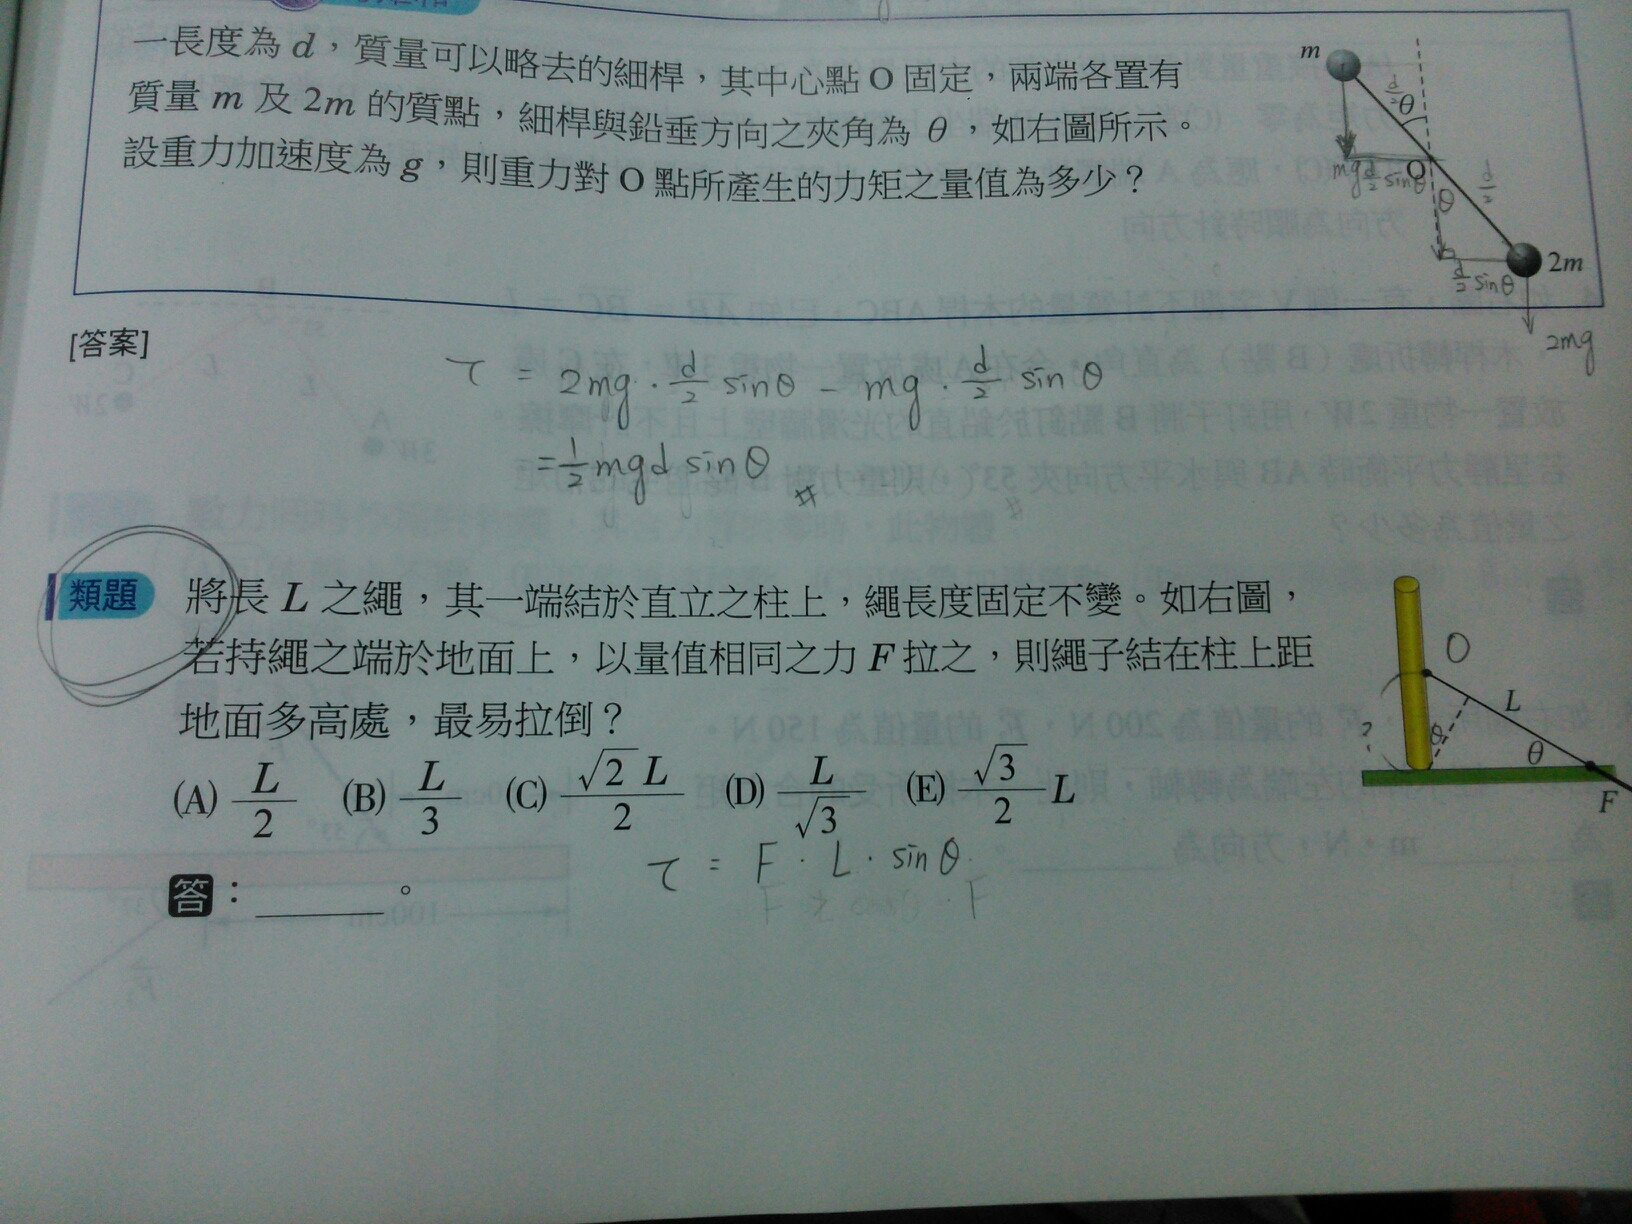 一長度為 d，質量可以略去的細桿，其中心點 O 固定，兩端各置有
質量 m 及 2m 的質點，細桿與鉛垂方向之夾角為 θ，如右圖所示。
設重力加速度為 g，則重力對 O 點所產生的力矩之量值為多少？
m
d/2
θ
mg
d/2 sinθ
O
θ
d/2
2m
d/2 sinθ
2mg
[答案]
τ = 2mg · d/2 sinθ − mg · d/2 sinθ
= 1/2 mgd sinθ #
類題 將長 L 之繩，其一端結於直立之柱上，繩長度固定不變。如右圖，
若持繩之端於地面上，以量值相同之力 F 拉之，則繩子結在柱上距
地面多高處，最易拉倒？
(A) L/2 (B) L/3 (C) √2 L/2 (D) L/√3 (E) √3/2 L
答：______。
τ = F · L · sinθ
O
L
?
θ
θ
F